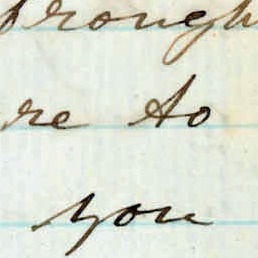 brough
re to
you